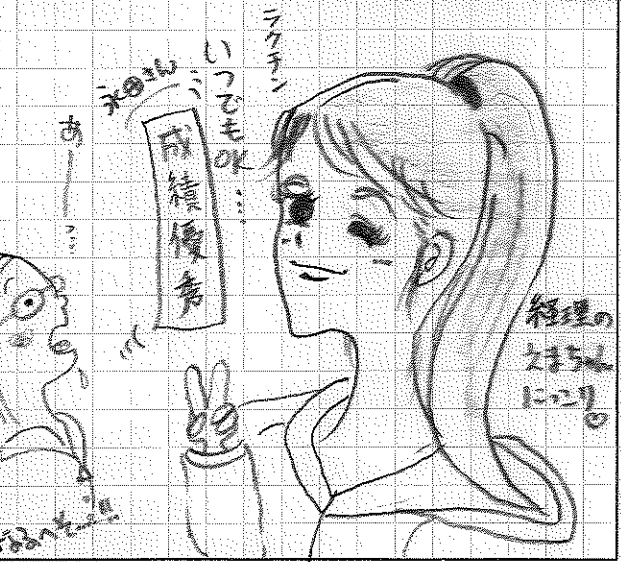 ラクチン
いつでも
OK…
永田さん
成績優秀
あー…
経理の
えまちゃん
にっこり♡
なるへそ〜!!